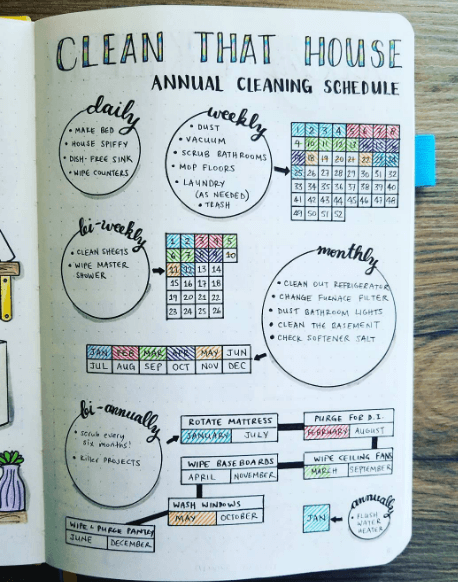 CLEAN THAT HOUSE
ANNUAL CLEANING SCHEDULE
daily
• MAKE BED
• HOUSE SPIFFY
• DISH-FREE SINK
• WIPE COUNTERS
weekly
• DUST
• VACUUM
• SCRUB BATHROOMS
• MOP FLOORS
• LAUNDRY
(AS NEEDED)
• TRASH
1 2 3 4 5 6 7 8
9 10 11 12 13 14 15 16
17 18 19 20 21 22 23 24
25 26 27 28 29 30 31 32
33 34 35 36 37 38 39 40
41 42 43 44 45 46 47 48
49 50 51 52
bi-weekly
• CLEAN SHEETS
• WIPE MASTER
SHOWER
1 2 3 4 5
6 7 8 9 10
11 12 13 14
15 16 17 18
19 20 21 22
23 24 25 26
monthly
• CLEAN OUT REFRIGERATOR
• CHANGE FURNACE FILTER
• DUST BATHROOM LIGHTS
• CLEAN THE BASEMENT
• CHECK SOFTENER SALT
JAN FEB MAR APR MAY JUN
JUL AUG SEP OCT NOV DEC
bi-annually
• scrub every
six months!
• Killer PROJECTS
ROTATE MATTRESS
JANUARY JULY
PURGE FOR D.I.
FEBRUARY AUGUST
WIPE BASEBOARDS
APRIL NOVEMBER
WIPE CEILING FANS
MARCH SEPTEMBER
WASH WINDOWS
MAY OCTOBER
WIPE & PURGE PANTRY
JUNE DECEMBER
annually
• FLUSH
WATER
HEATER
JAN